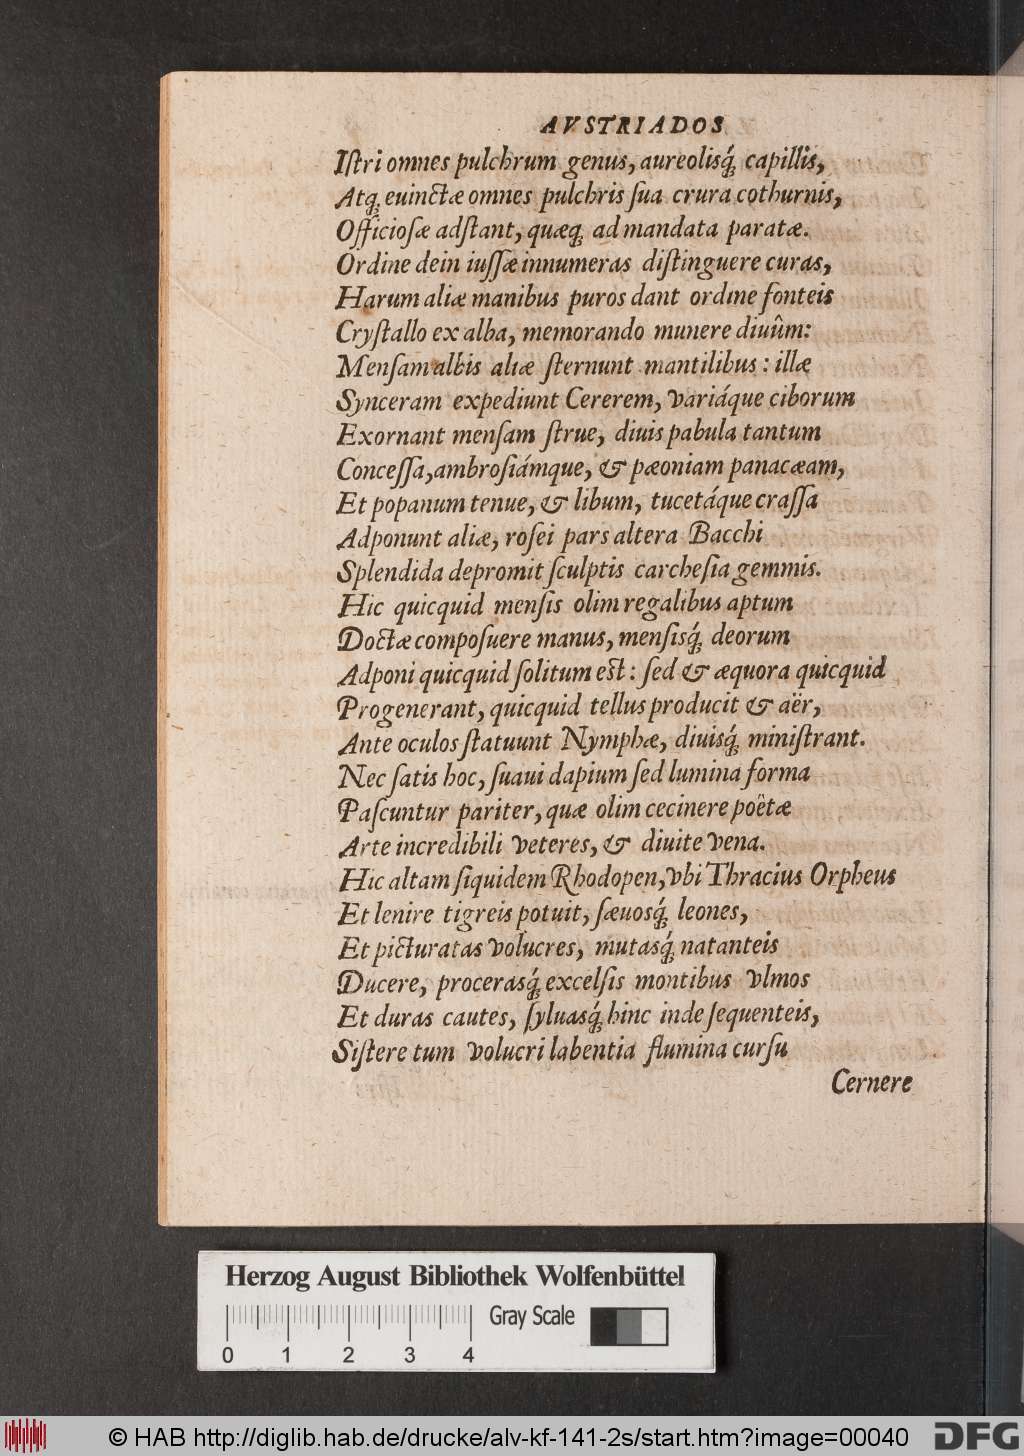 AVSTRIADOS
Iſtri omnes pulchrum genus, aureolisq́; capillis,
Atq; euinctæ omnes pulchris ſua crura cothurnis,
Officioſæ adſtant, quæq; ad mandata paratæ.
Ordine dein iuſſæ innumeras diſtinguere curas,
Harum aliæ manibus puros dant ordine fonteis
Cryſtallo ex alba, memorando munere diuûm:
Menſam albis aliæ ſternunt mantilibus: illæ
Synceram expediunt Cererem, variáque ciborum
Exornant menſam ſtrue, diuis pabula tantum
Conceſſa, ambroſiámque, & pæoniam panacæam,
Et popanum tenue, & libum, tucetáque craſſa
Adponunt aliæ, roſei pars altera Bacchi
Splendida depromit ſculptis carcheſia gemmis.
Hic quicquid menſis olim regalibus aptum
Doctæ compoſuere manus, menſisq́; deorum
Adponi quicquid ſolitum est: ſed & æquora quicquid
Progenerant, quicquid tellus producit & aër,
Ante oculos ſtatuunt Nymphæ, diuisq́; miniſtrant.
Nec ſatis hoc, ſuaui dapium ſed lumina forma
Paſcuntur pariter, quæ olim cecinere poêtæ
Arte incredibili veteres, & diuite vena.
Hic altam ſiquidem Rhodopen, vbi Thracius Orpheus
Et lenire tigreis potuit, ſæuosq́; leones,
Et picturatas volucres, mutasq́; natanteis
Ducere, procerasq́; excelſis montibus vlmos
Et duras cautes, ſyluasq́; hinc inde ſequenteis,
Siſtere tum volucri labentia flumina curſu
Cernere
Herzog August Bibliothek Wolfenbüttel
Gray Scale
0 1 2 3 4
© HAB http://diglib.hab.de/drucke/alv-kf-141-2s/start.htm?image=00040
DFG